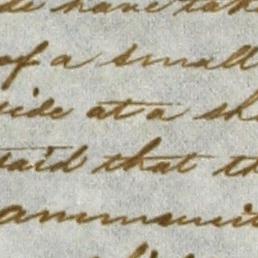 have tak
of a small
side at a sh
said that th
ammunit